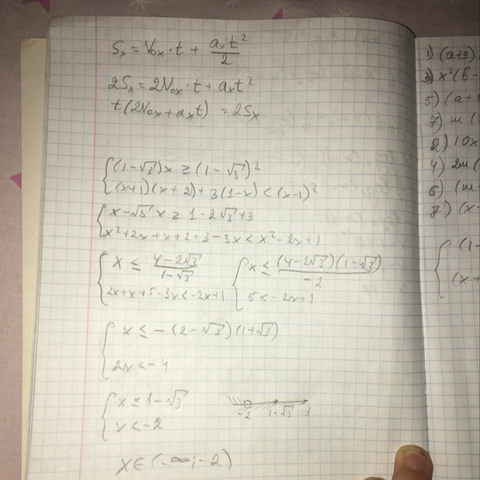 Sₓ = V₀ₓ · t + aₓt²/2
2Sₓ = 2V₀ₓ · t + aₓt²
t(2V₀ₓ + aₓt) = 2Sₓ
{(1-√3)x ≥ (1-√3)²
(x+1)(x+2) + 3(1-x) < (x-1)²
{x-√3x ≥ 1-2√3+3
x²+2x+x+2+3-3x < x²-2x+1
{x ≤ (4-2√3)/(1-√3) {x ≤ (4-2√3)(1+√3)/-2
2x+x+5-3x < -2x+1 5 < -2x+1
{x ≤ -(2-√3)(1+√3)
2x < -4
{x ≤ 1-√3
x < -2
-2 1-√3
x ∈ (-∞; -2)
1) (a+3)
5) (a+
7) m(
2) 10x
4) 2m(
6) (m-
8) (x-
{(1-
(x+